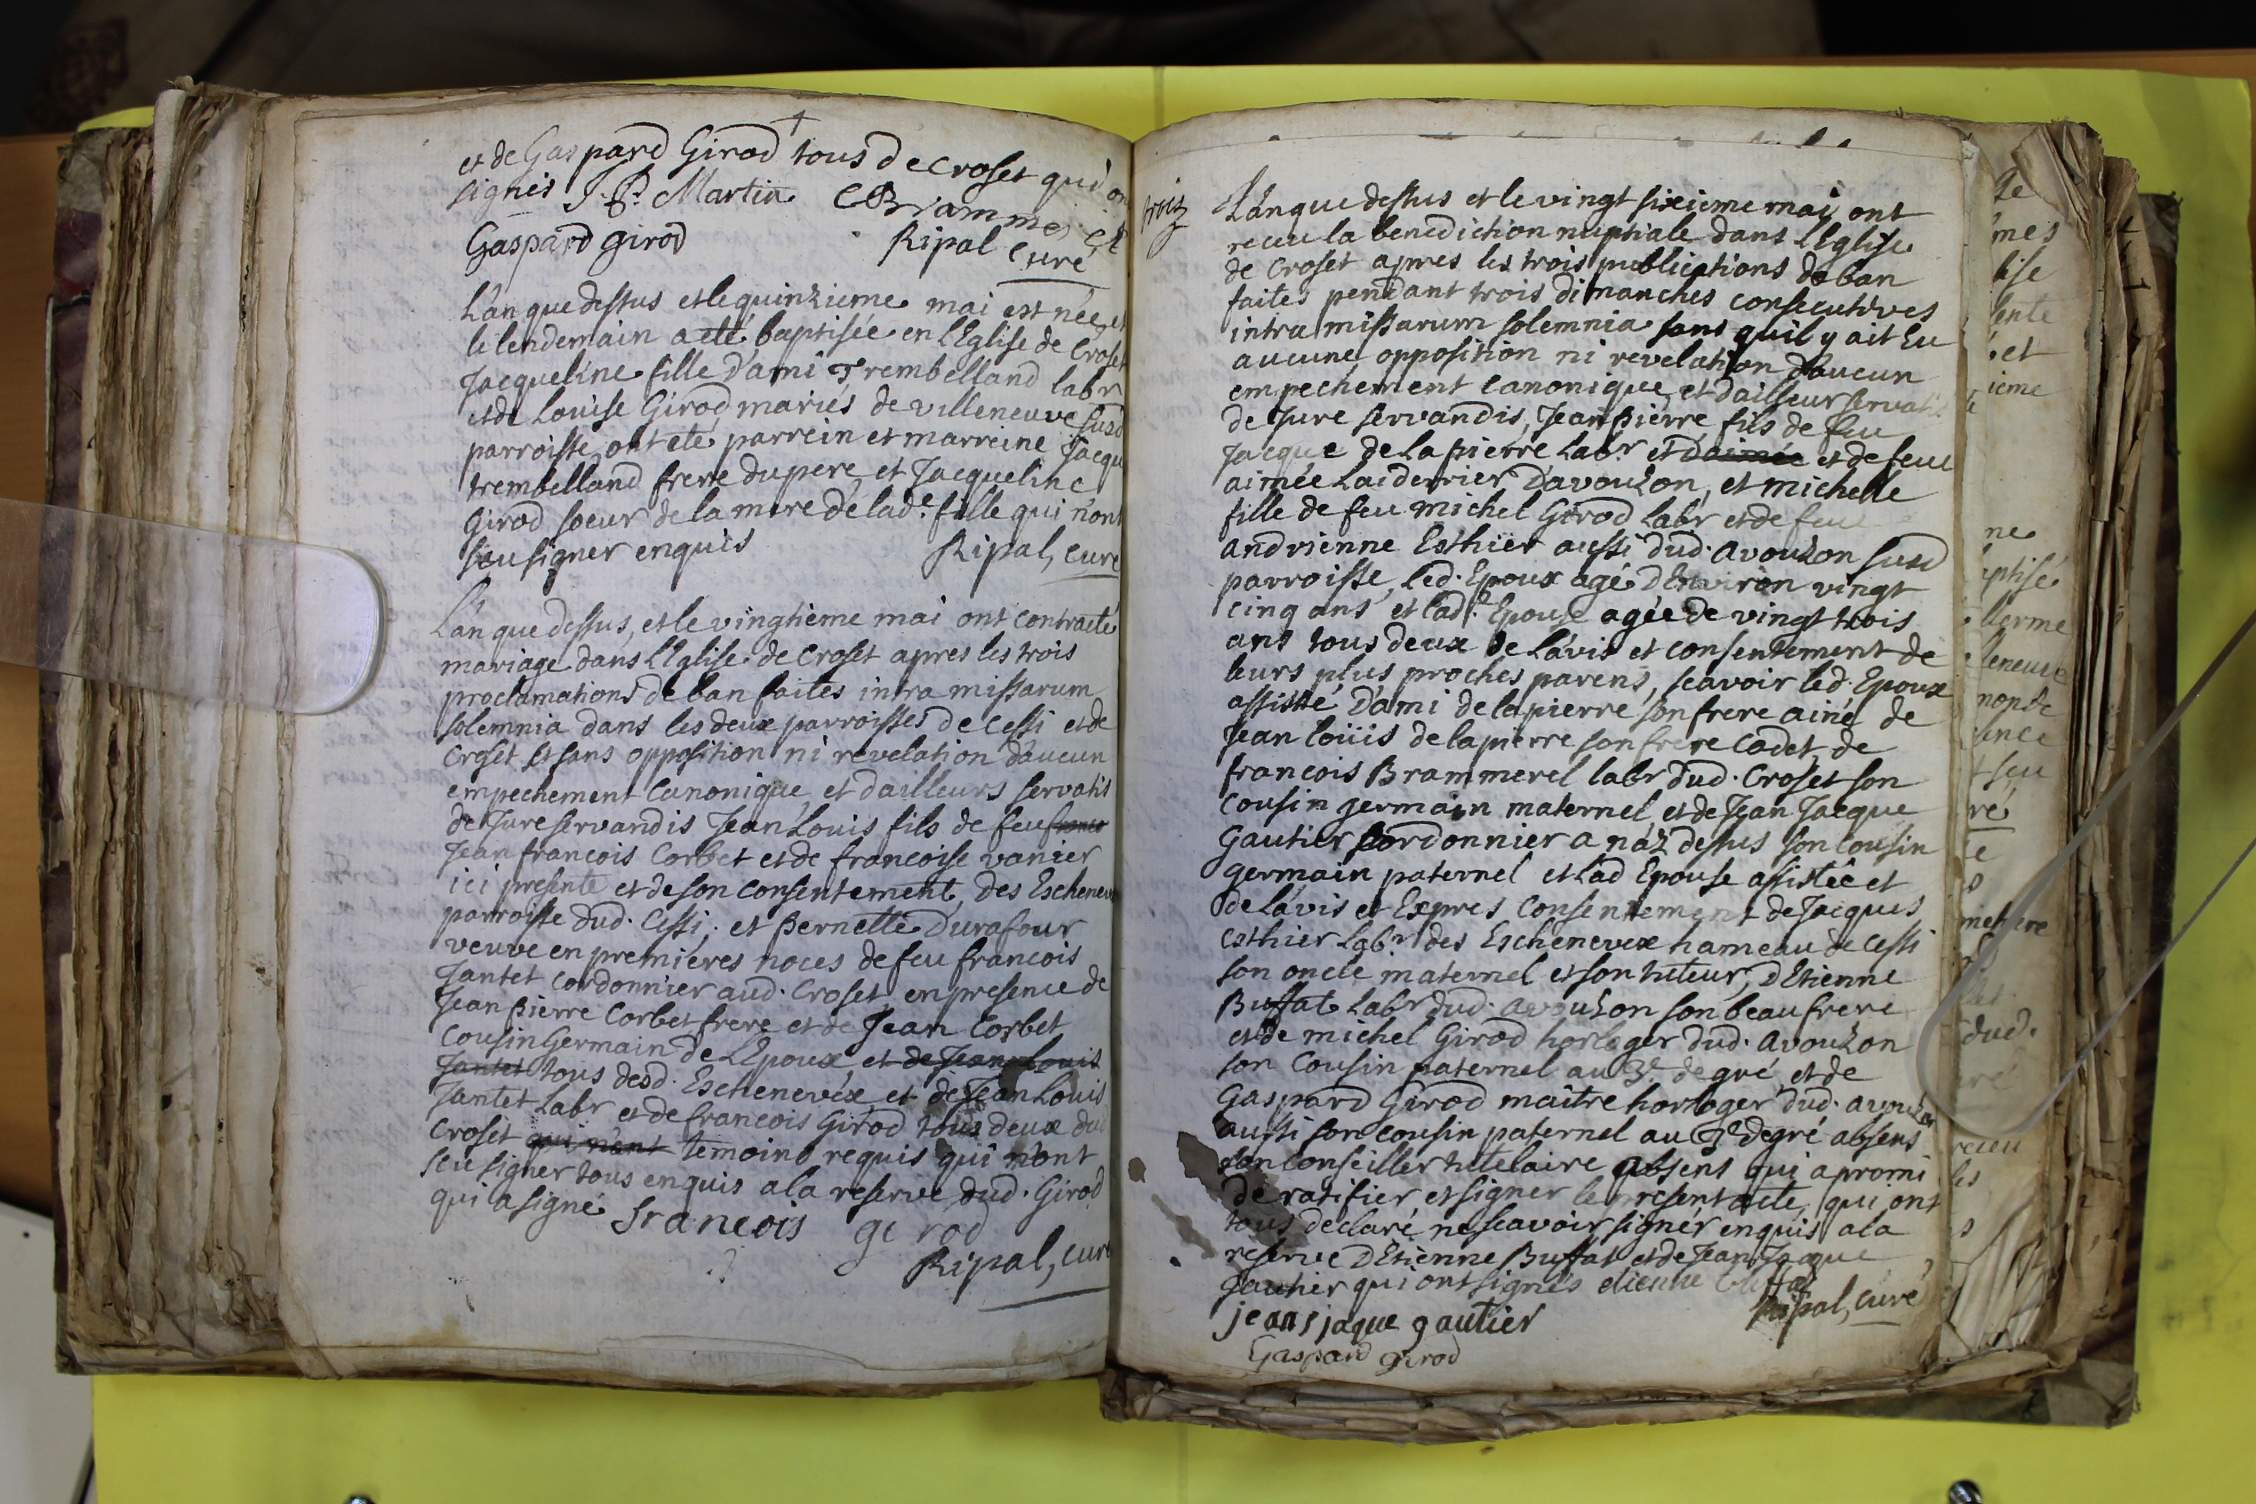 et de Gaspard Girod tous de croset qui on
signés J. P. Martin CBrammerel
Gaspard girod Ripal Curé
L'an que dessus et le quinzieme mai est née et
le lendemain a eté baptisée en l'Eglise de Croset
Jacqueline fille d'ami Trembelland labr
et de Louise Girod mariés de villeneuve susd
parroisse, ont eté parrein et marreine Jacqu
trembelland frere du pere, et Jacqueline
Girod soeur de la mere de lad.e fille qui n'ont
sceu signer enquis Ripal, curé
L'an que dessus, et le vingtième mai ont contracté
mariage dans l'Eglise de Croset apres les trois
proclamations de ban faites intra missarum
solemnia dans les deux parroisses de Cessi et de
Croset et sans opposition ni revelation d'aucun
empechement Canonique, et d'ailleurs servatis
de Jure servandis Jean Louis fils de feu
Jean francois Corbet et de francoise vanier
ici presente et de son consentement, des Eschenev
parroisse dud. Cessi; et Pernette Durafour
veuve en premieres noces de feu francois
Jantet cordonnier aud. Croset, en presence de
Jean Pierre Corbet frere et de Jean Corbet
cousin Germain de l'Epoux et de Jean Louis
Jantet tous desd. Eschenevéx, et de Jean Louis
Jantet labr et de francois Girod tous deux dud
Croset qui n'ont temoins requis qui n'ont
sceu signer tous enquis a la reserve dud. Girod
qui a signé francois gerod
Ripal, curé
trois
L'an que dessus et le vingt sixieme mai ont
receu la benediction nuptiale dans l'Eglise
de Croset apres les trois publications de ban
faites pendant trois dimanches consecutives
intra missarum solemnia sans quil y ait Eu
aucune opposition ni revelation d'aucun
empechement canonique, et d'ailleur servatis
de Jure servandis, Jean Pierre fils de feu
Jacque de la pierre labr et d'aimée et de feue
aimée Laiderrier d'avouzon, et michelle
fille de feu michel Girod labr et de feue
andrienne Esthier aussi dud. avouzon susd
parroisse, led. Epoux agé d'Environ vingt
cinq ans et lad.e Epouse agée de vingt trois
ans tous deux de l'avis et consentement de
leurs plus proches parens, scavoir led. Epoux
assisté d'ami de lapierre son frere ainé de
Jean loüis de lapierre son frere cadet, de
francois Brammerel labr dud. Croset son
cousin germain maternel et de Jean Jacque
Gautier cordonnier a naz dessus son cousin
germain paternel et lad Epouse assistée et
de l'avis et Expres Consentement de Jacques
esthier labr des Escheneveux hameau de Cessi
son oncle maternel et son tuteur, d'Etienne
Buffat labr dud. avouzon son beau frere
et de michel Girod horloger dud. avouzon
son Cousin paternel au 3.e degré, et de
Gaspard Girod maître horloger dud. avouzon
aussi son cousin paternel au 3e degré absens
son conseiller tutelaire absens qui a promi
de ratifier et signer le present acte, qui ont
tous declaré ne scavoir signer enquis a la
reserve d'Etienne Buffat et de Jean Jaque
Gautier qui ont signés etienne buffat
Ripal, curé
jeans jaque gautier
Gaspard girod